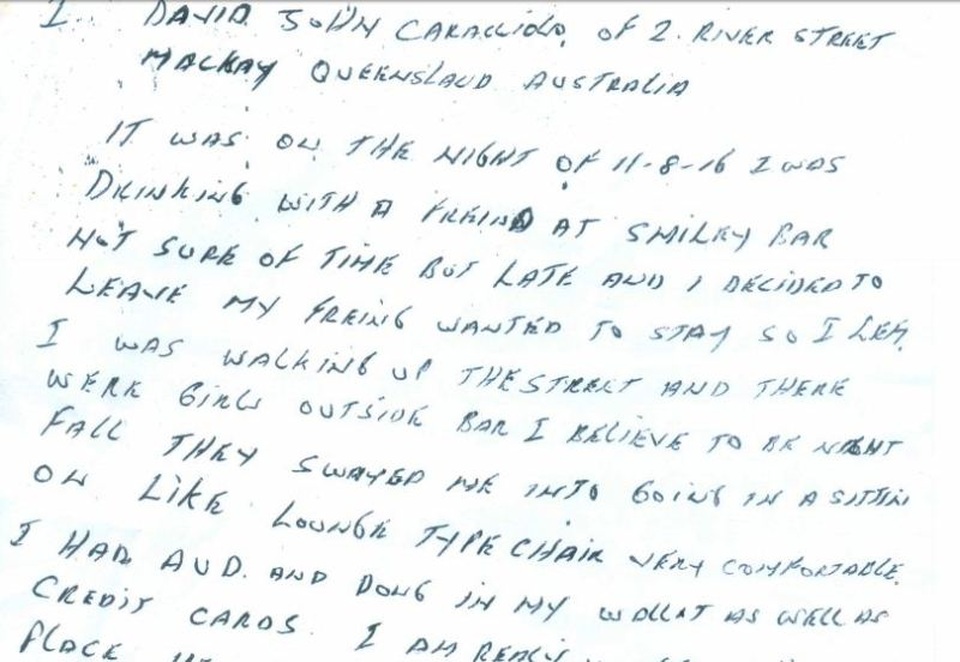 I DAVID JOHN of 2. RIVER STREET
MACKAY QUEENSLAUD AUSTRALIA
IT WAS ON THE NIGHT OF 11-8-16 I WAS
DRINKING WITH A FREIND AT SMILEY BAR
NOT SURE OF TIME BUT LATE AND I DECIDED TO
LEAVE MY FREING WANTED TO STAY SO I LEFT.
I WAS WALKING UP THE STREET AND THERE
WERE GIRLS OUTSIDE BAR I BELIEVE TO BE NIGHT
FALL THEY SWAYED ME INTO GOING IN A SITTIN
ON LIKE LOUNGE TYPE CHAIR VERY COMFORTABLE.
I HAD AUD. AND DONG IN MY WALLAT AS WELL AS
CREDIT CARDS. I AM REALY
PLACE